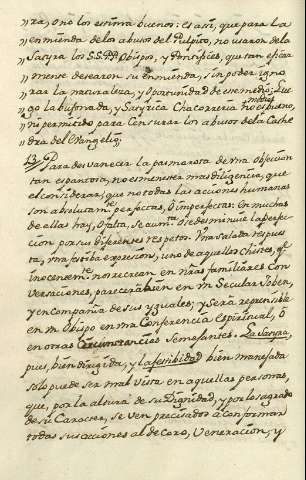 „rá, ó nó los estima buenos: es asi, que para la
„enmienda de los abusos del Pulpito, no usaron de la
„Satyra los S.S. PP. Obispos, y Pontifices, que tan eficaz
„mente desearon su enmienda, sin poder igno
„rar la naturaleza, y oportunidad de ese medio: Lue
„go la bufonada, y Satyrica Chacorreria no es bueno,
„ni permitido medio para Censurar los abusos de la Cathe
„dra del Evangelio„
13. Para desvanecer la pasmarota de una objecion
tan espantosa, no es menester mas diligencia, que
el considerar, que no todas las acciones humanas
son absolutamte. perfectas, ó imperfectas: En muchas
de ellas hay, ó falta, se aumta. ó se desminuie la perfec
cion por sus diferentes respetos. Una salada respues
ta, una festiba expresion, uno de aquellos chistes, qe.
inocentemte. nos recrean en nras familiares con
versaciones, parecerá bien en un Secular Joben,
y en compañia de sus yguales; y será reprensible
en un Obispo en una Conferencia espiritual, ó
en otras Circunstancias semejantes. La Satyra,
pues, bien dirigida, y la festibidad bien manejada
solo puede ser mal vista en aquellas personas,
que, por la altura de su Dignidad, y por lo sagrado
de su Caracter, se ven precisados á conformar
todas sus acciones al decoro, veneracion, y